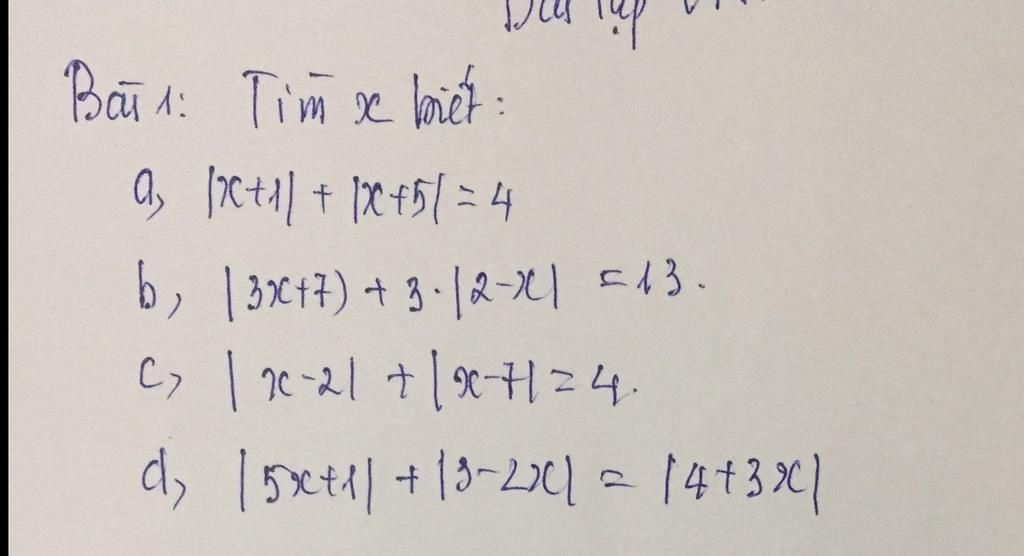 Bài tập
Bài 1: Tìm x biết:
a, |x+1| + |x+5| = 4
b, |3x+7) + 3·|2-x| = 13.
c, |x-2| + |x-7| = 4.
d, |5x+1| + |3-2x| = |4+3x|